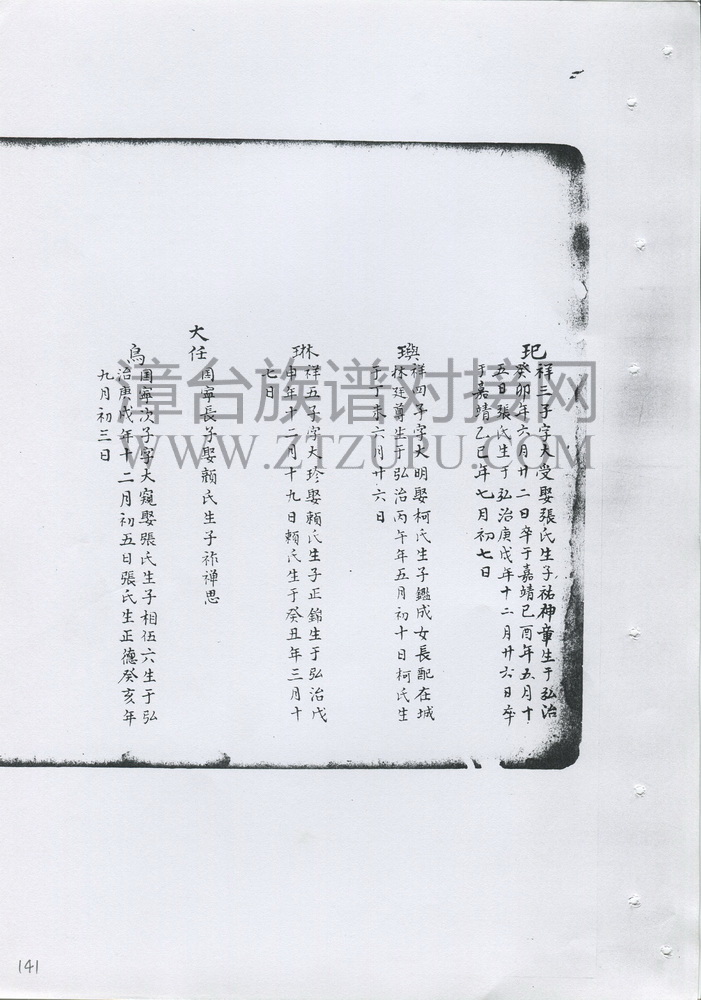 玘
祥三子字大受娶張氏生子祐神童生于弘治
癸卯年六月廿二日卒于嘉靖己酉年五月十
五日張氏生于弘治庚戌年十二月廿六日卒
于嘉靖乙巳年七月初七日
璵
祥四子字大明娶柯氏生子鑑成女長配在城
林廷尊生于弘治丙午年五月初十日柯氏生
于丁未六月廿六日
琳
祥五子字大珍娶賴氏生子正錦生于弘治戊
申年十二月十九日賴氏生于癸丑年三月十
七日
大任
国寧長子娶賴氏生子祚禅思
烏
国寧次子字大寵娶張氏生子相伍六生于弘
治庚戌年十二月初五日張氏生正德癸亥年
九月初三日
漳台族谱对接网
WWW.ZTZUPU.COM
141